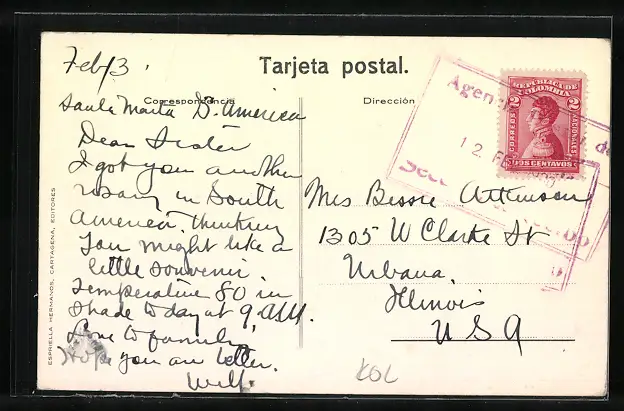 Feb/3.
Tarjeta postal.
Correspondencia
Dirección
Santa Marta S. America
Dear Sister
I got you another
rosary in South
America, thinking
you might like a
little souvenir.
Temperature 80 in
shade today at 9 A.M.
Love to family,
Hope you are better.
Will.
Mrs Bessie Atkinson
1305 W Clarke St
Urbana,
Illinois
U S A
REPUBLICA DE
COLOMBIA
2 2
CORREOS NACIONALES
DOS CENTAVOS
12
ESPRIELLA HERMANOS, CARTAGENA, EDITORES
KOL